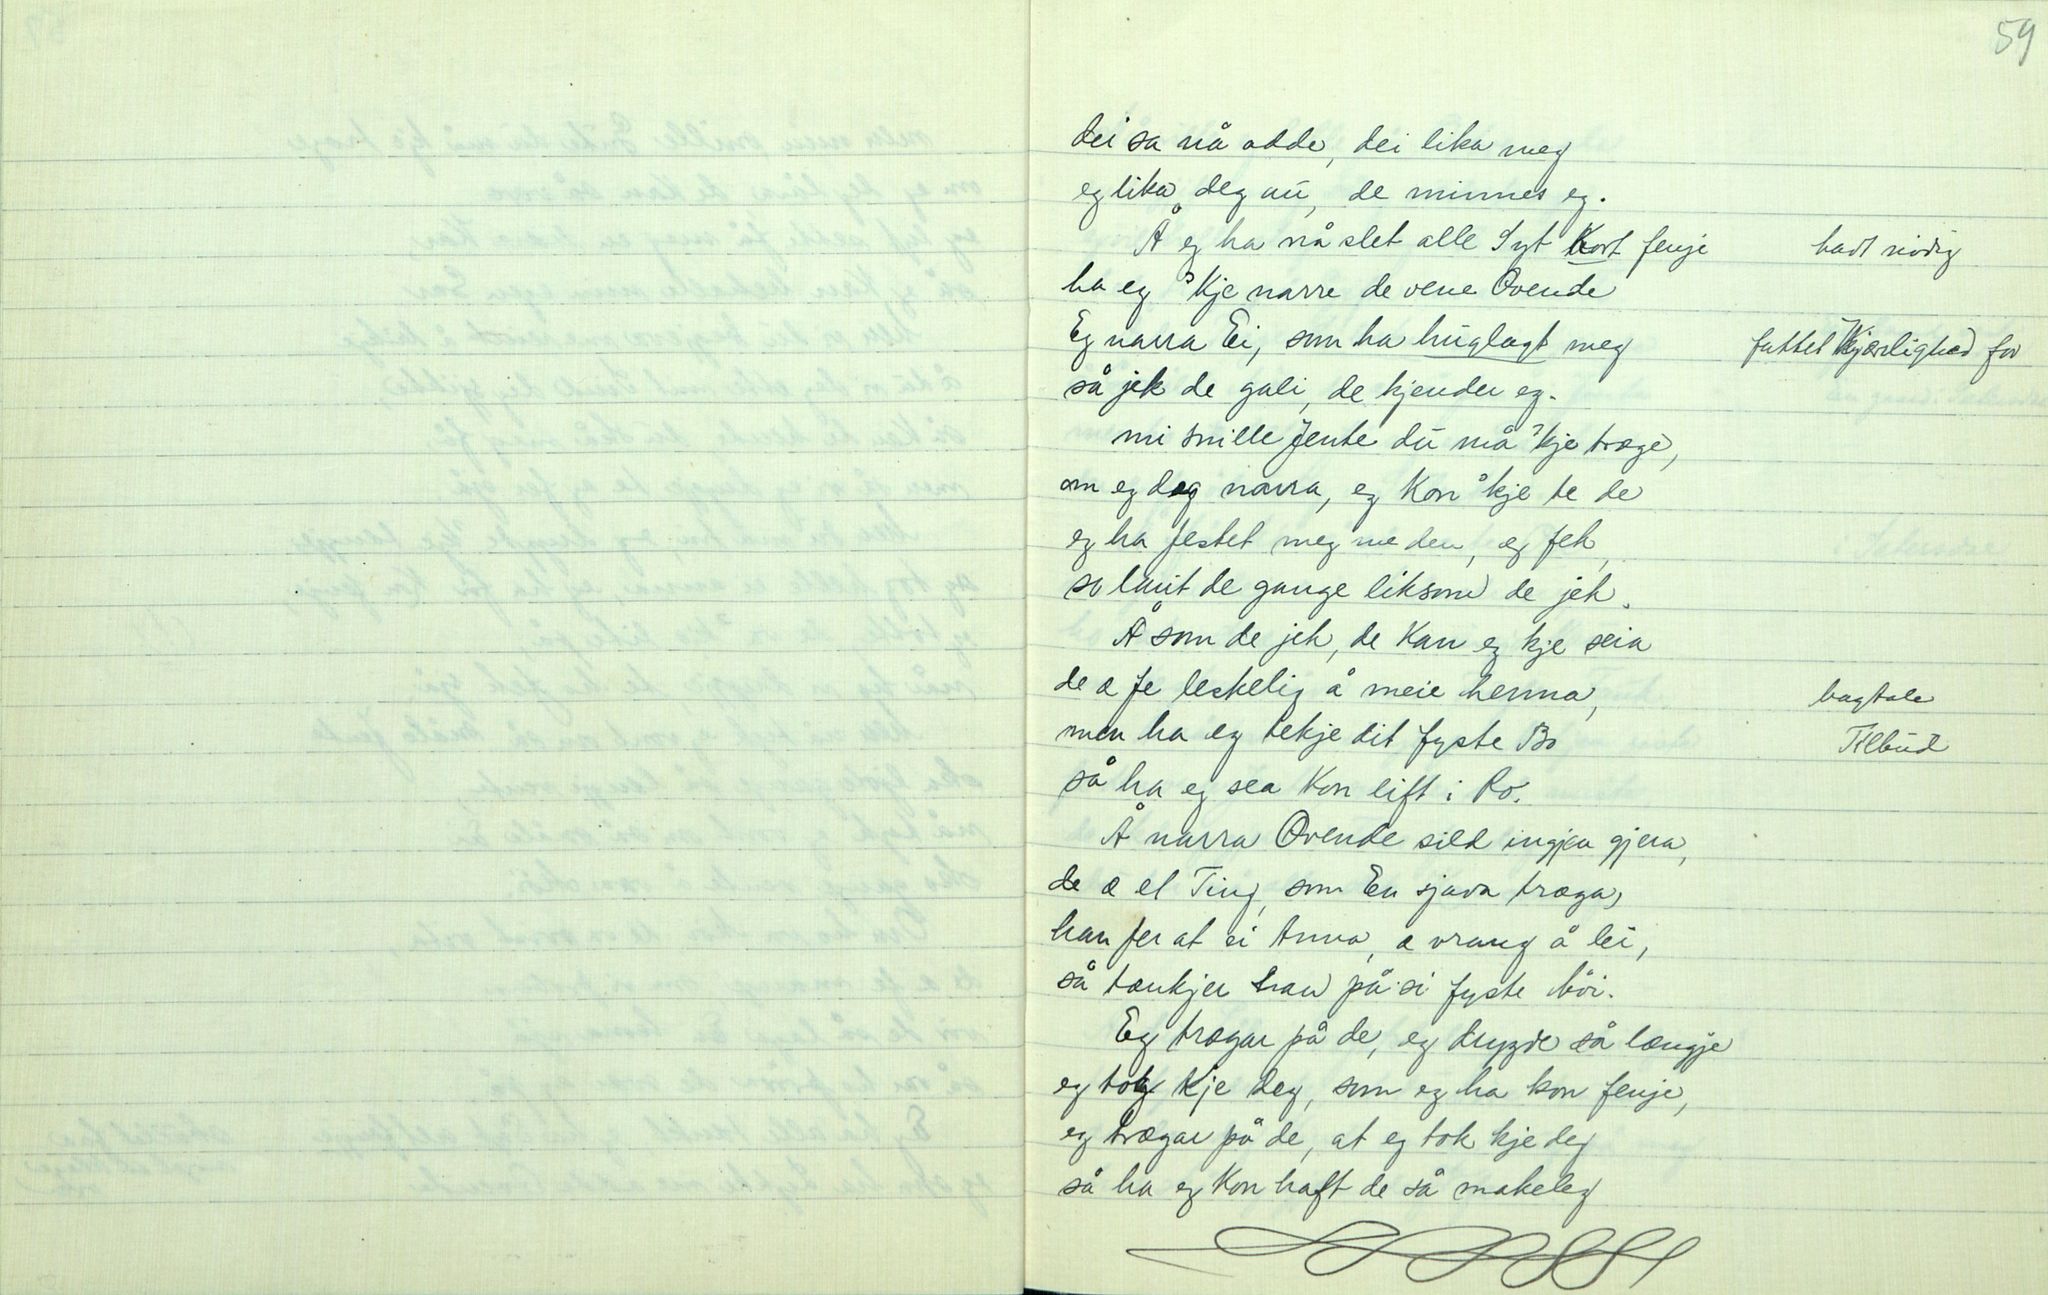 59
dei sa nå adde, dei lika meg
eg lika deg au, de minnes eg.
Å eg ha nå slet alle Syt kort fenje hadt nödig
ha eg 'kje narre de vene Ovende
Eg narra Ei, som ha huglagt meg fattet Kjærlighed for
så jek de gali, de kjender eg.
mi snille Jente du må 'kje træge,
om eg deg narra, eg kon 'kje te de
eg ha festet meg me den, eg fek,
so laut de gange liksom de jek.
Å som de jek, de kan eg kje seia
de æ fe leskelig å meie henna, bagtale
men ha eg tekje dit fyste Bo Tilbud
så ha eg sea kon lift i Ro.
Å narra Ovende sild ingjen gjera,
de æ et Ting, som En sjava træga,
han fer at ei Anna, æ vrang å lei,
så tænkjer han på si fyste Möi.
Eg trægar på de, eg drygde så længje
eg tok kje deg, som eg ha kon fenje,
eg trægar på de, at eg tok kje deg
så ha eg kon haft de så makeleg